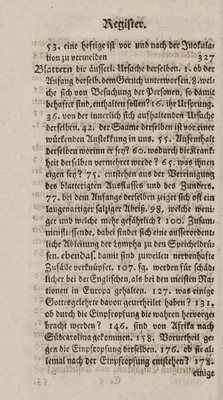 Register.
53. eine heftige ist vor und nach der Inokula-
tion zu vermeiden 327
Blattern die äusserl. Ursache derselben. 1. ob der
Anfang derselb. dem Geruch unterworfen. 8. wel-
che sich von Besuchung der Personen, so damit
behaftet sind, enthalten sollen? 16. ihr Ursprung.
36. von der innerlich sich aufhaltenden Ursache
derselben. 42. der Saame derselben ist vor einer
würkenden Ansteckung in uns. 55. Aufenthalt
derselben worinn er sey? 60. wodurch die Krank-
heit derselben vermehret werde? 65. was ihnen
eigen sey? 75. entstehen aus der Vereinigung
des blatterigten Ausflusses und des Zunders.
77. bey dem Anfange derselben zeiget sich oft ein
laugenartiger salzigte 98. welche weni-
ger und welche mehr gefährlich? 100. Zusam-
menfliessende, dabei findet sich eine ausserordent-
liche Ableitung der Lympha zu den Speicheldrü-
sen. ebendas. damit sind zuweilen nervenhafte
Zufälle verknüpfet. 107. sg. werden für schäd-
licher bei der Englischen, als bei den meisten Na-
tionen in Europa gehalten. 127. was einige
Gottesgelehrte davon geurtheilet haben? 131,
ob durch die Einpfropfung die wahren hervorge-
bracht werden? 146. sind von Afrika nach
Südcarolina gekommen. 158. Vorurtheil ge-
gen die Einpfropfung derselben. 176. ob sie al-
lemal nach der Einpfropfung entstehen? 178.
einige